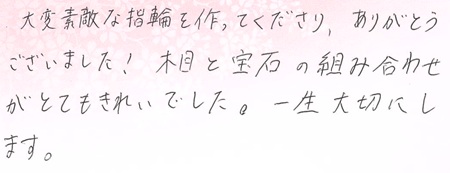 大変素敵な指輪を作ってくださり、ありがとう
ございました！木目と宝石の組み合わせ
がとてもきれいでした。一生大切にし
ます。